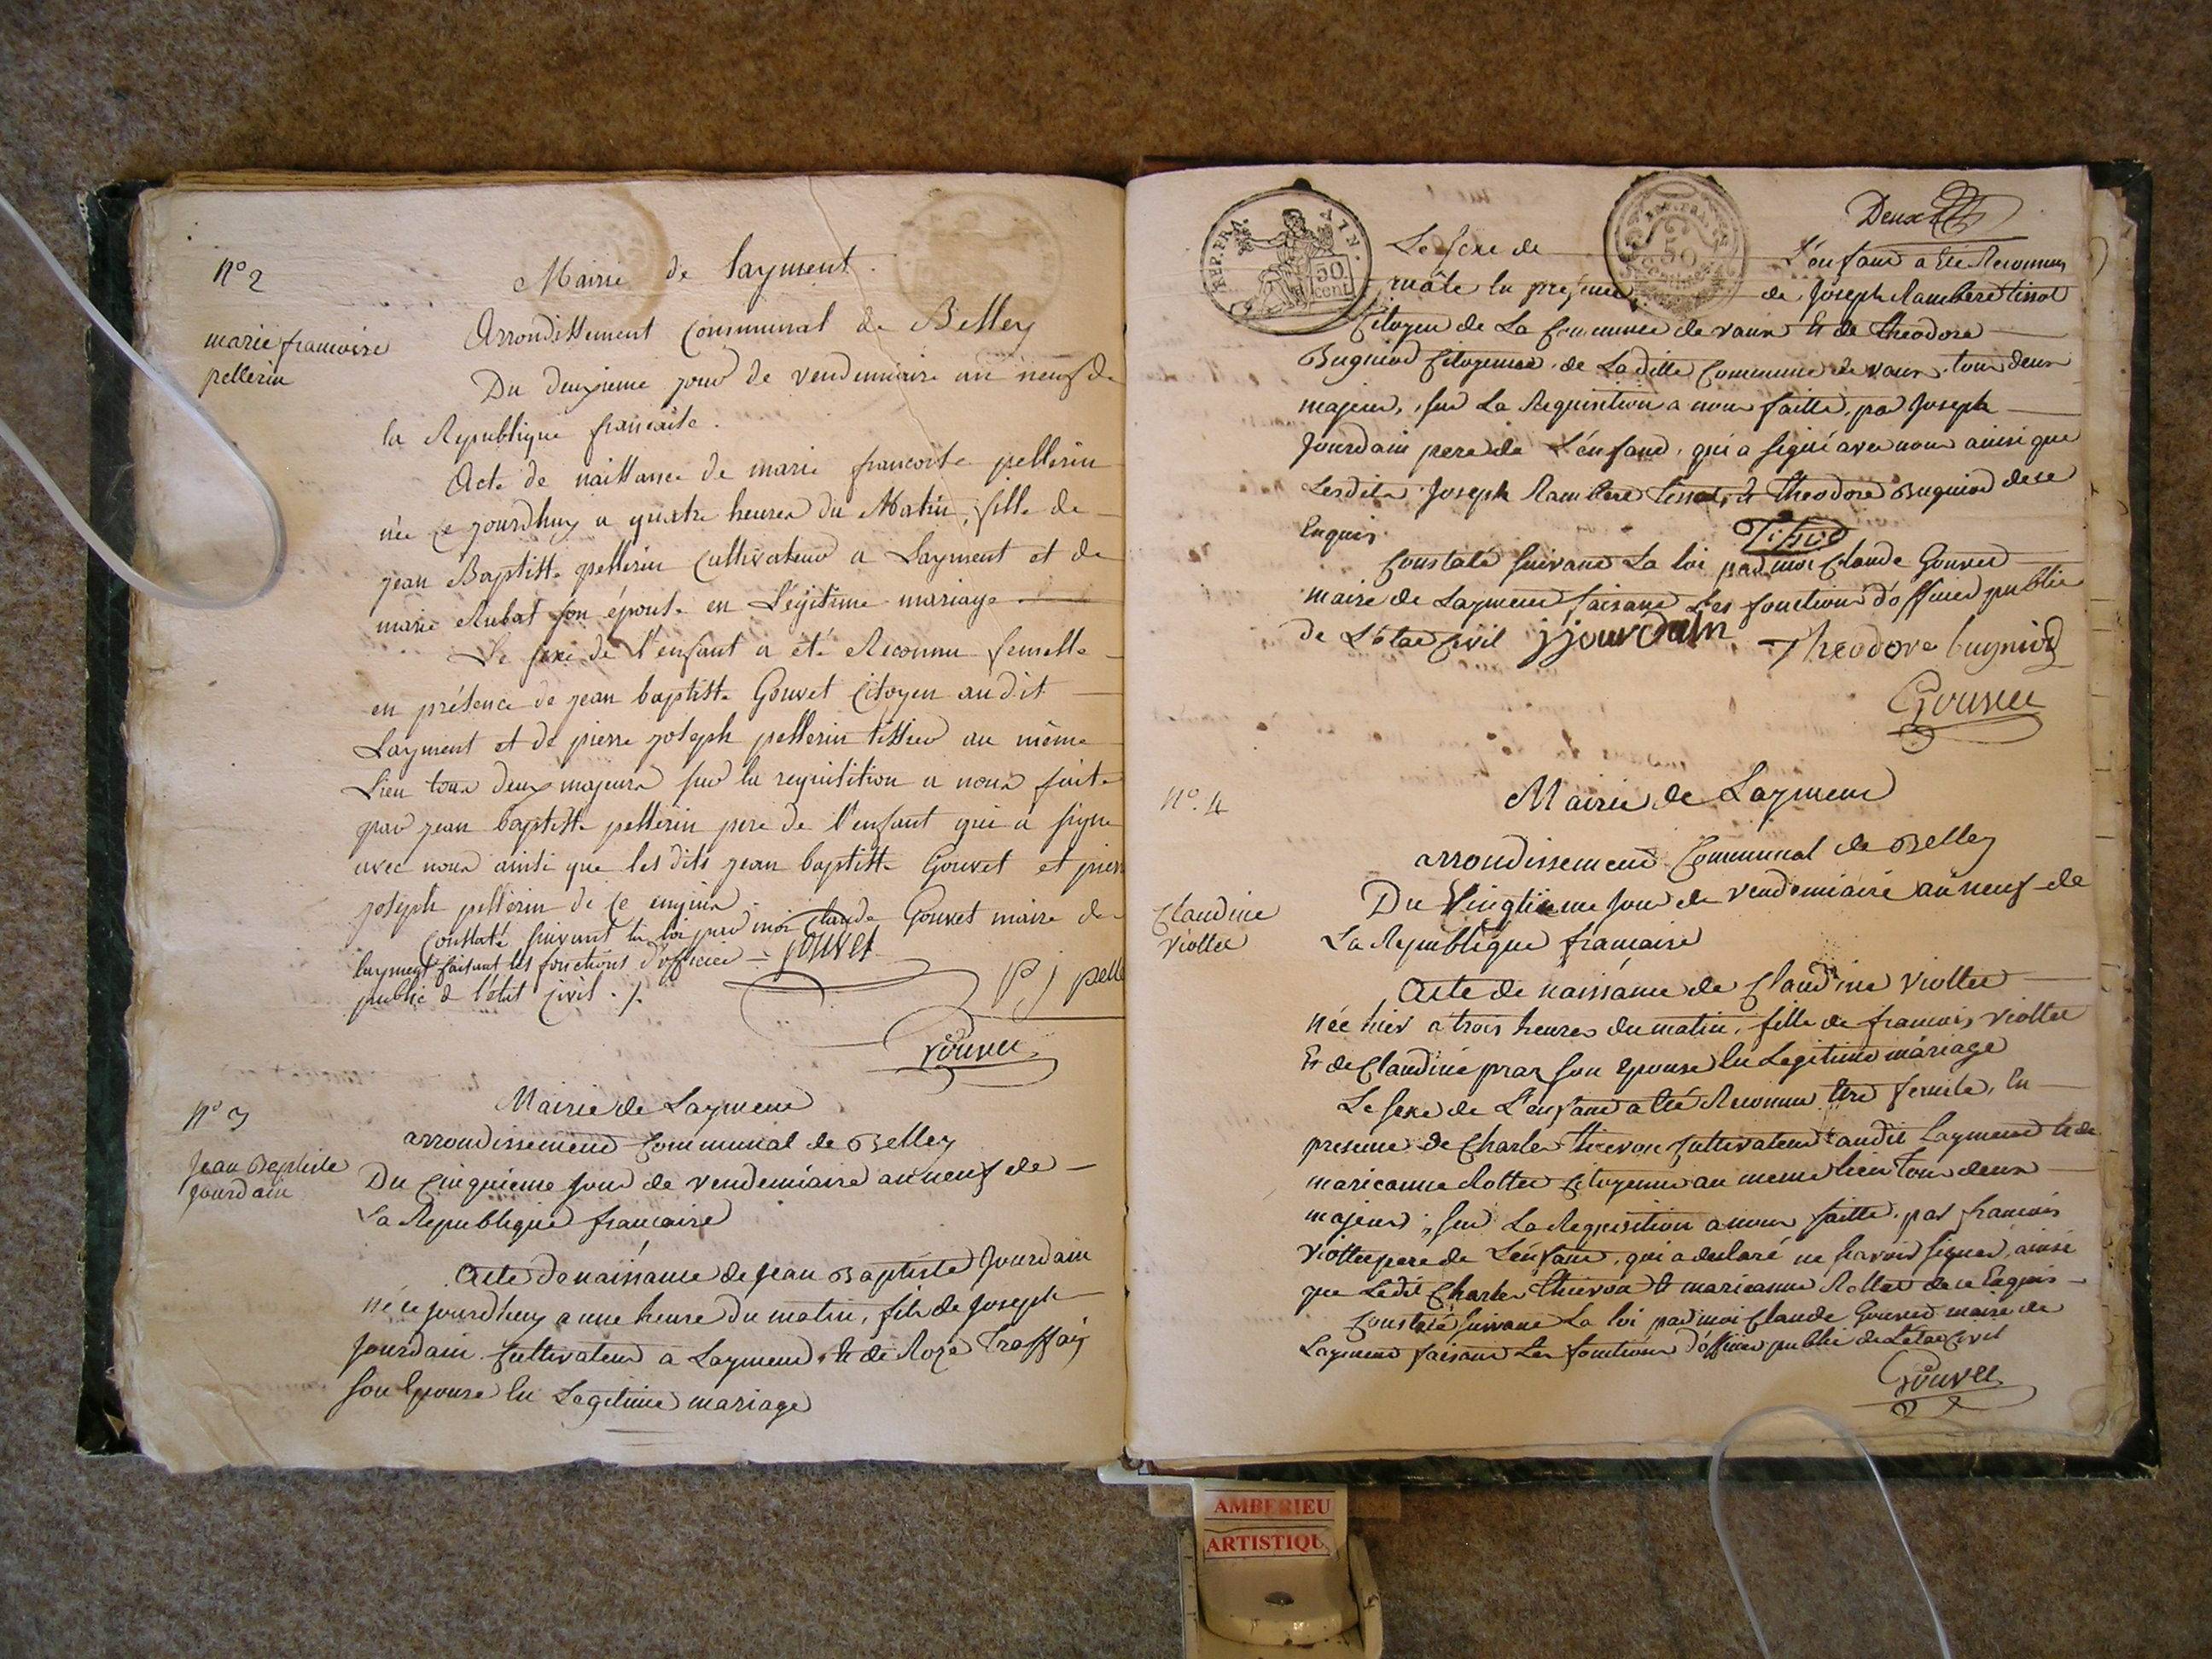 n.° 2
marie francoise
pellerin
Mairie de Layment.
Arrondissement Communal de Belley
Du deuxieme jour de vendemiaire an neuf de
la Republique francaise.
Acte de naissance de marie francoise pellerin
née ce jourdhuy a quatre heures du Matin, fille de
jean Baptiste pellerin Cultivateur a Layment et de
marie Rubat son épouse en Légitime mariage
Le sexe de l'enfant a été Reconnu femelle
en présence de jean baptiste Gouvet Citoyen audit
Layment et de pierre joseph pellerin tissier au même
Lieu tous deux majeurs sur la requisition a nous faite
par jean baptiste pellerin pere de l'enfant qui a signe
avec nous ainsi que les dits jean baptiste Gouvet et pierr
joseph pellerin de ce enquis
Constaté suivant la loi par moi Claude Gouvet maire de
layment faisant les fonctions d'officier gouvet
public de l'état civil ./.
P j pelle
Gouvet
n° 3
Jean Baptiste
jourdain
Mairie de Layment
arrondissement Communal de Belley
Du Cinquieme jour de vendemiaire an neuf de
La Republique francaise
Acte de naissance de jean Baptiste Jourdain
né ce jourdhuy a une heure du matin, fils de joseph
jourdain Cultivateur a Layment, et de Roze Traffay
son Epouse En Legitime mariage
REP. FRA.
50
cent.
REP. FRANC
50
Centimes
Deux
Le sexe de L'enfant a Eté Reconnu
mâle En presence de joseph Rambere tissot
Citoyen de La Commune de vaux Et de theodore
Bugniod Citoyenne de La ditte Commune de vaux tous deux
majeurs, sur La Requisition a nous faitte par joseph
jourdain pere de L'enfant, qui a signé avec nous ainsi que
Lesdits joseph Rambere tissot, Et theodore Bugniod de ce
Enquis
Tissot
Constaté suivant La loi par moi Claude Gouvet
maire de Layment faisant Les fonctions d'officier public
de L'état Civil jjourdain Theodore bugniod
Gouvet
n°. 4
Claudine
viollet
Mairie de Layment
arrondissement Communal de Belley
Du Vingtieme jour de vendemiaire an neuf de
La Republique francaise
Acte de naissance de Claudine viollet
née hier a trois heures du matin, fille de francois viollet
Et de Claudine praz son epouse En Legitime mariage
Le sexe de L'enfant a Eté Reconnu Etre femele, En
presence de Charles thievon Cultivateur audit Layment Et de
marieanne Rollet Citoyenne au meme lieu Tous deux
majeurs, sur La Requisition a nous faitte par francois
viollet pere de L'enfant, qui a declaré ne scavoir signer, ainsi
que Ledit Charles thievon Et marieanne Rollet de ce Enquis
Constaté suivant La loi par moi Claude Gouvet maire de
Layment faisant Les fonctions d'officier public de L'état Civil
Gouvet
AMBERIEU
ARTISTIQU